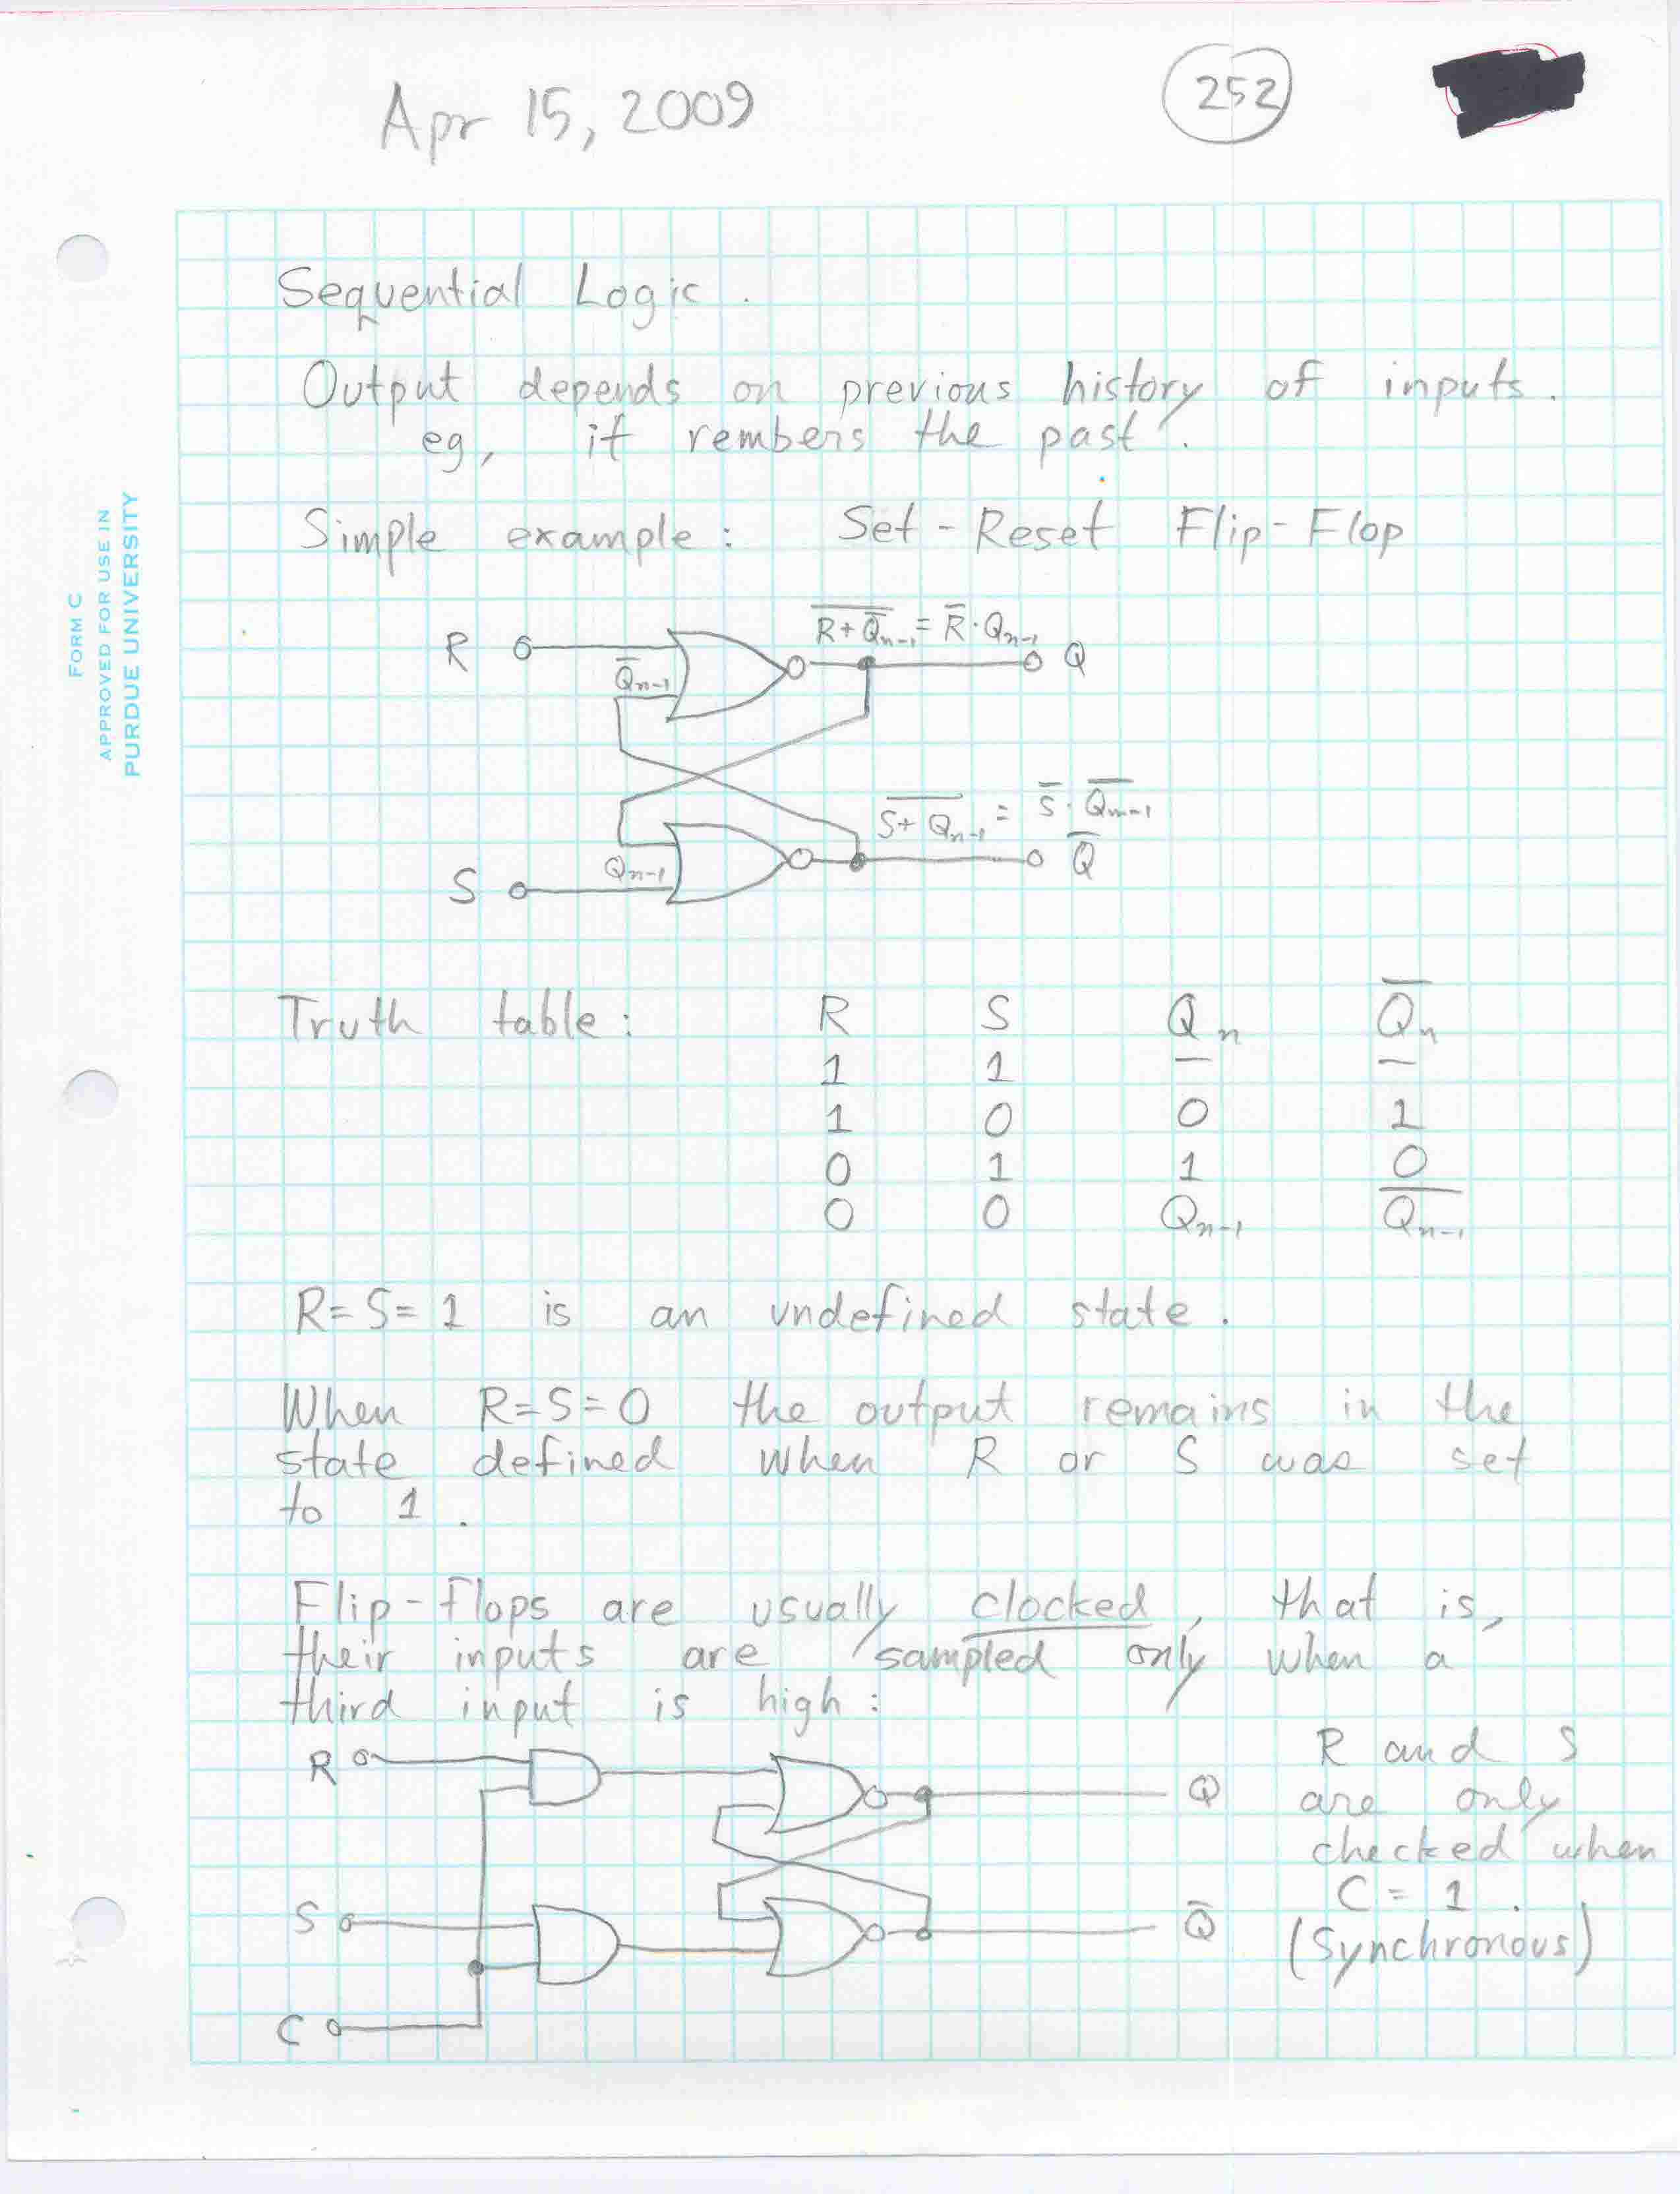 Apr 15, 2009
252
FORM C
APPROVED FOR USE IN
PURDUE UNIVERSITY
Sequential Logic.
Output depends on previous history of inputs.
eg, it rembers the past.
Simple example: Set-Reset Flip-Flop
R
$\overline{R+\overline{Q}_{n-1}} = \overline{R} \cdot Q_{n-1}$
Q
$\overline{Q}_{n-1}$
$\overline{S+Q_{n-1}} = \overline{S} \cdot \overline{Q_{n-1}}$
$Q_{n-1}$
$\overline{Q}$
S
Truth table: R S $Q_n$ $\overline{Q_n}$
1 1 — —
1 0 0 1
0 1 1 0
0 0 $Q_{n-1}$ $\overline{Q_{n-1}}$
R=S=1 is an undefined state.
When R=S=0 the output remains in the
state defined when R or S was set
to 1.
Flip-Flops are usually clocked, that is,
their inputs are sampled only when a
third input is high:
R
Q
S
$\overline{Q}$
C
R and S
are only
checked when
C = 1.
(Synchronous)